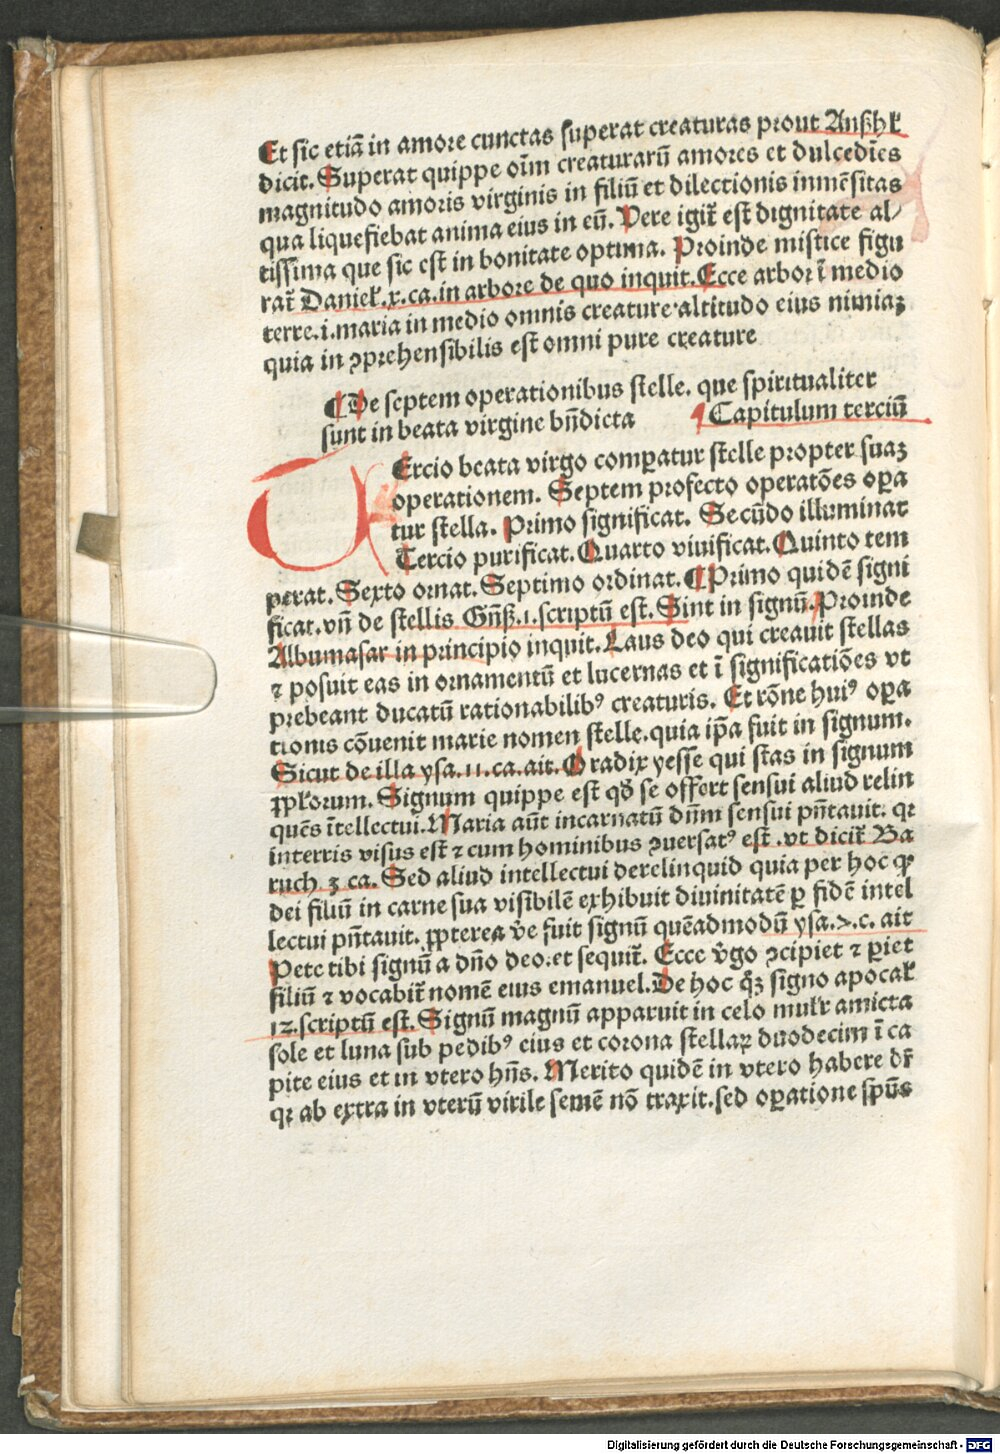 Et sic etiā in amore cunctas superat creaturas prout Anßhl̄
dicit. Superat quippe oīm creaturarū amores et dulcedīes
magnitudo amoris virginis in filiū et dilectionis inmēsitas
qua liquefiebat anima eius in eū. Vere igit̄ est dignitate al/
tissima que sic est in bonitate optima. Proinde mistice figu
rat̄ Daniel̄.x.ca.in arbore de quo inquit.Ecce arbor ī medio
terre.i.maria in medio omnis creature altitudo eius nimiaꝫ
quia in ꝓprehensibilis est omni pure creature
¶De septem operationibus stelle. que spiritualiter
sunt in beata virgine bn̄dicta ¶Capitulum terciū
TErcio beata virgo comꝑatur stelle propter suaꝫ
operationem. Septem profecto operatōes oꝑa
tur stella. Primo significat. Secūdo illuminat
Tercio purificat. Quarto viuificat. Quinto tem
perat. Sexto ornat. Septimo ordinat. ¶Primo quidē signi
ficat.vn̄ de stellis Gn̄ß.1.scriptū est. Sint in signū.Proinde
Albumasar in principio inquit. Laus deo qui creauit stellas
⁊ posuit eas in ornamentū et lucernas et ī significatiōes vt
prebeant ducatū rationabilibꝰ creaturis. Et rōne huiꝰ oꝑa
tionis cōuenit marie nomen stelle.quia ip̄a fuit in signum.
Sicut de illa ysa.11.ca.ait. O radix yesse qui stas in signum
ꝑpl̄orum. Signum quippe est qd̄ se offert sensui aliud relin
quēs ītellectui.Maria aūt incarnatū dn̄m sensui pn̄tauit. qꝛ
interris visus est ⁊ cum hominibus ꝯuersatꝰ est .vt dicit̄ Ba
ruch 3 ca. Sed aliud intellectui derelinquid quia per hoc ꝙ
dei filiū in carne sua visibilē exhibuit diuinitatē ꝑ fidē intel
lectui pn̄tauit. ꝓpterea v̄e fuit signū quēadmodū ysa.7.c. ait
Pete tibi signū a dn̄o deo.et sequit̄. Ecce v̄go ꝯcipiet ⁊ ꝑiet
filiū ⁊ vocabit̄ nomē eius emanuel.De hoc qꝫ signo apocal̄
12.scriptū est. Signū magnū apparuit in celo mul̄r amicta
sole et luna sub pedibꝰ eius et corona stellaꝝ duodecim ī ca
pite eius et in vtero hn̄s. Merito quidē in vtero habere dr̄
qꝛ ab extra in vterū virile semē nō traxit.sed oꝑatione sp̄ūs
Digitalisierung gefördert durch die Deutsche Forschungsgemeinschaft - DFG